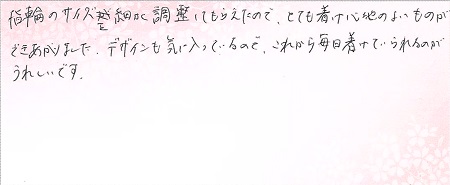 指輪のサイズ整細かく調整してもらえたので、とても着け心地のよいものが
できあがりました。デザインも気に入っているので、これから毎日着けていられるのが
うれしいです。